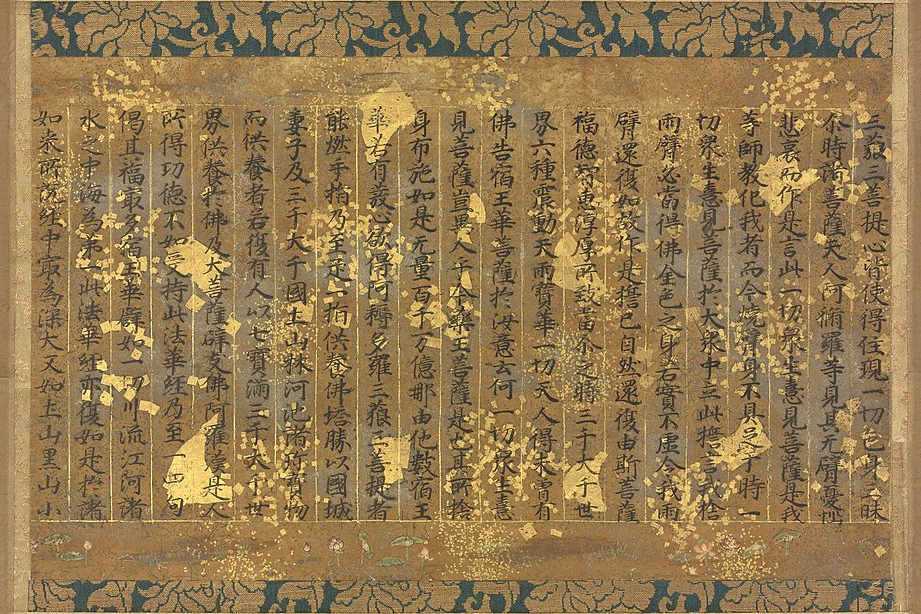 三藐三菩提心皆使得住現一切色身三昧
尒時諸菩薩天人阿脩羅等見其无臂憂惱
悲哀而作是言此一切衆生憙見菩薩是我
等師教化我者而今燒臂身不具足于時一
切衆生憙見菩薩於大衆中立此誓言我捨
兩臂必當得佛金色之身若實不虛令我兩
臂還復如故作是誓已自然還復由斯菩薩
福德智惠淳厚所致當尒之時三千大千世
界六種震動天雨寶華一切天人得未曾有
佛告宿王華菩薩於汝意云何一切衆生憙
見菩薩豈異人乎今藥王菩薩是也其所捨
身布施如是无量百千万億那由他數宿王
華若有發心欲得阿耨多羅三藐三菩提者
能燃手指乃至足一指供養佛塔勝以國城
妻子及三千大千國土山林河池諸珎寶物
而供養者若復有人以七寶滿三千大千世
界供養於佛及大菩薩辟支佛阿羅漢是人
所得功德不如受持此法華經乃至一四句
偈其福最多宿王華譬如一切川流江河諸
水之中海為第一此法華經亦復如是於諸
如来所說經中最為深大又如土山黑山小